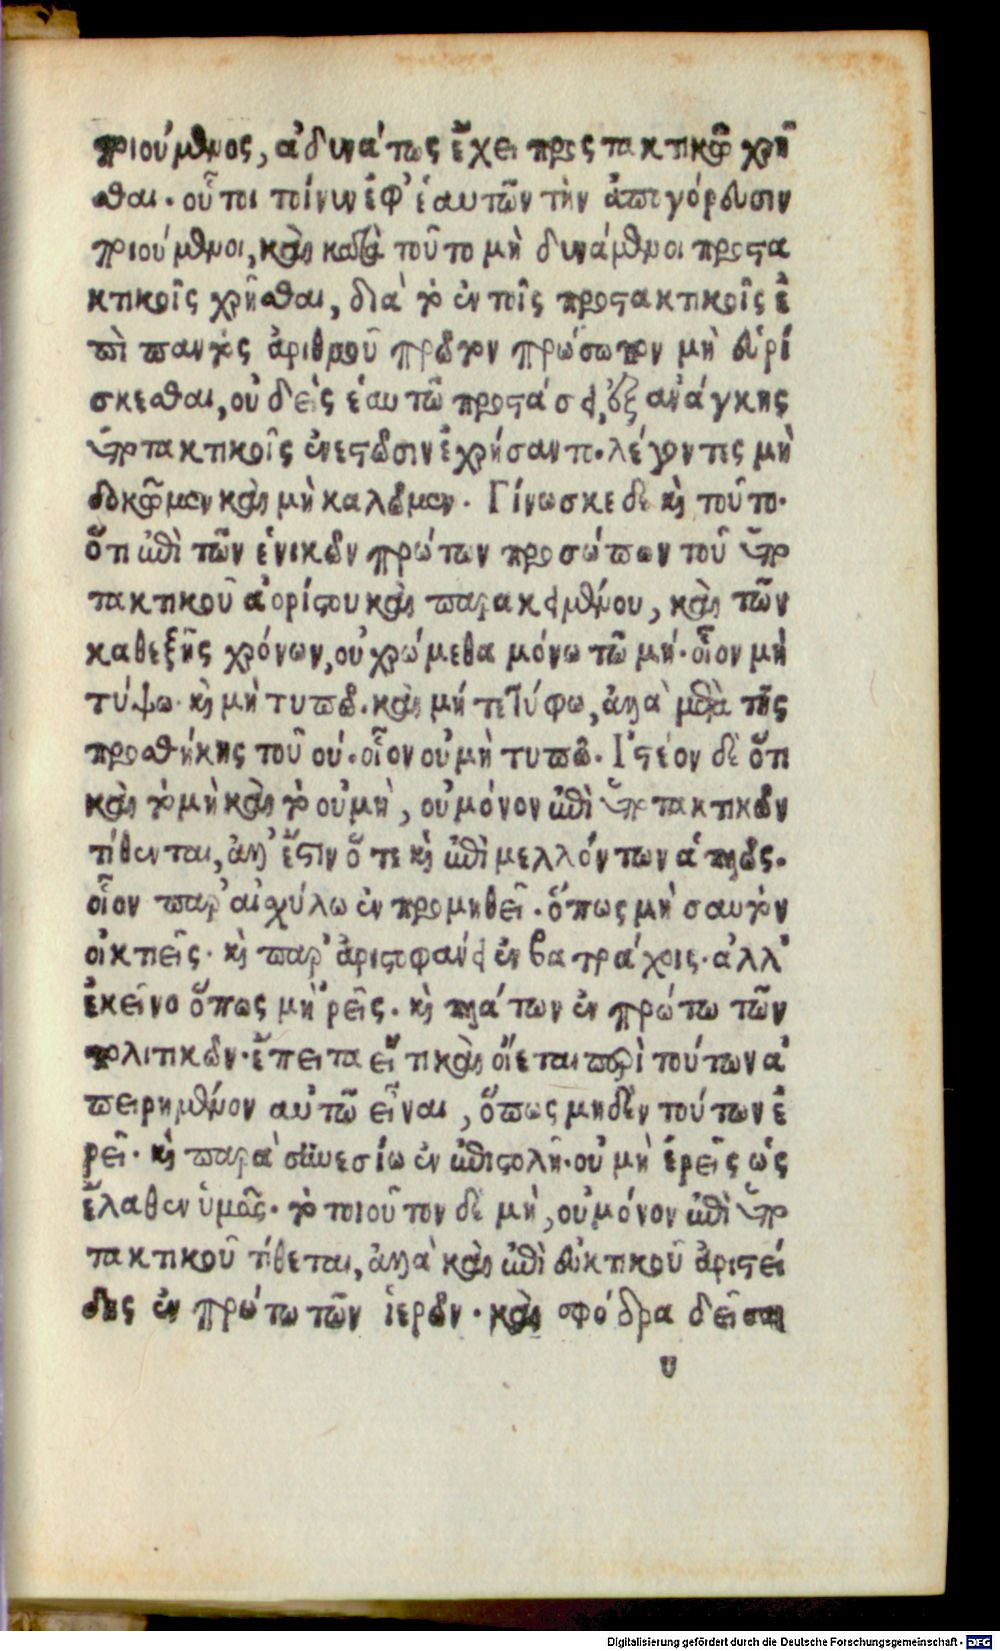 ποιούμενος, ἀδυνάτως ἔχει προστακτικῷ χρῆ
σθαι. οὗτοι τοίνυν ἐφ' ἑαυτῶν τὴν ἀπαγόρευσιν
ποιούμενοι, καὶ κατὰ τοῦτο μὴ δυνάμενοι προστα
κτικοῖς χρῆσθαι, διὰ τὸ ἐν τοῖς προστακτικοῖς ἐ
πὶ παντὸς ἀριθμοῦ πρῶτον πρόσωπον μὴ εὑρί
σκεσθαι, οὐδεὶς ἑαυτῶ προστάσσει, ἐξ ἀνάγκης
ὑποτακτικοῖς ἐνεστῶσιν ἐχρήσαντο. λέγοντες μὴ
δοκῶμεν καὶ μὴ καλῶμεν. Γίνωσκε δὲ καὶ τοῦτο.
ὅτι ἐπὶ τῶν ἑνικῶν πρώτων προσώπων τοῦ ὑπο
τακτικοῦ ἀορίστου καὶ παρακειμένου, καὶ τῶν
καθεξῆς χρόνων, οὐ χρώμεθα μόνω τῶ μή. οἷον μὴ
τύψω. καὶ μὴ τυπῶ. καὶ μή τετύφω, ἀλλὰ μετὰ τῆς
προσθήκης τοῦ οὐ. οἷον οὐ μὴ τυπῶ. Ἰστέον δὲ ὅτι
καὶ τὸ μὴ καὶ τὸ οὐ μὴ, οὐ μόνον ἐπὶ ὑποτακτικῶν
τίθενται, ἀλλ' ἔστιν ὅτε καὶ ἐπὶ μελλόντων ἁπλῶς.
οἷον παρ' αἰσχύλω ἐν προμηθεῖ. ὅπως μὴ σαυτὸν
οἰκτιεῖς. καὶ παρ' ἀριστοφάνει ἐν βατράχοις. ἀλλ'
ἐκεῖνο ὅπως μὴ ρεῖς. καὶ πλάτων ἐν πρώτω τῶν
πολιτικῶν. ἔπειτα εἴ τι καὶ οἴεται περὶ τούτων ἀ
πειρημένον αὐτῶ εἶναι, ὅπως μηδὲν τούτων ἐ
ρεῖ. καὶ παρὰ συνεσίω ἐν ἐπιστολῆ. οὐ μὴ ἐρεῖς ὡς
ἔλαθεν ὑμᾶς. τὸ τοιοῦτον δὲ μὴ, οὐ μόνον ἐπὶ ὑπο
τακτικοῦ τίθεται, ἀλλὰ καὶ ἐπὶ εὐκτικοῦ ἀριστεί
δης ἐν πρώτω τῶν ἱερῶν. καὶ σφόδρα δεῖσαι
υ
Digitalisierung gefördert durch die Deutsche Forschungsgemeinschaft - DFG